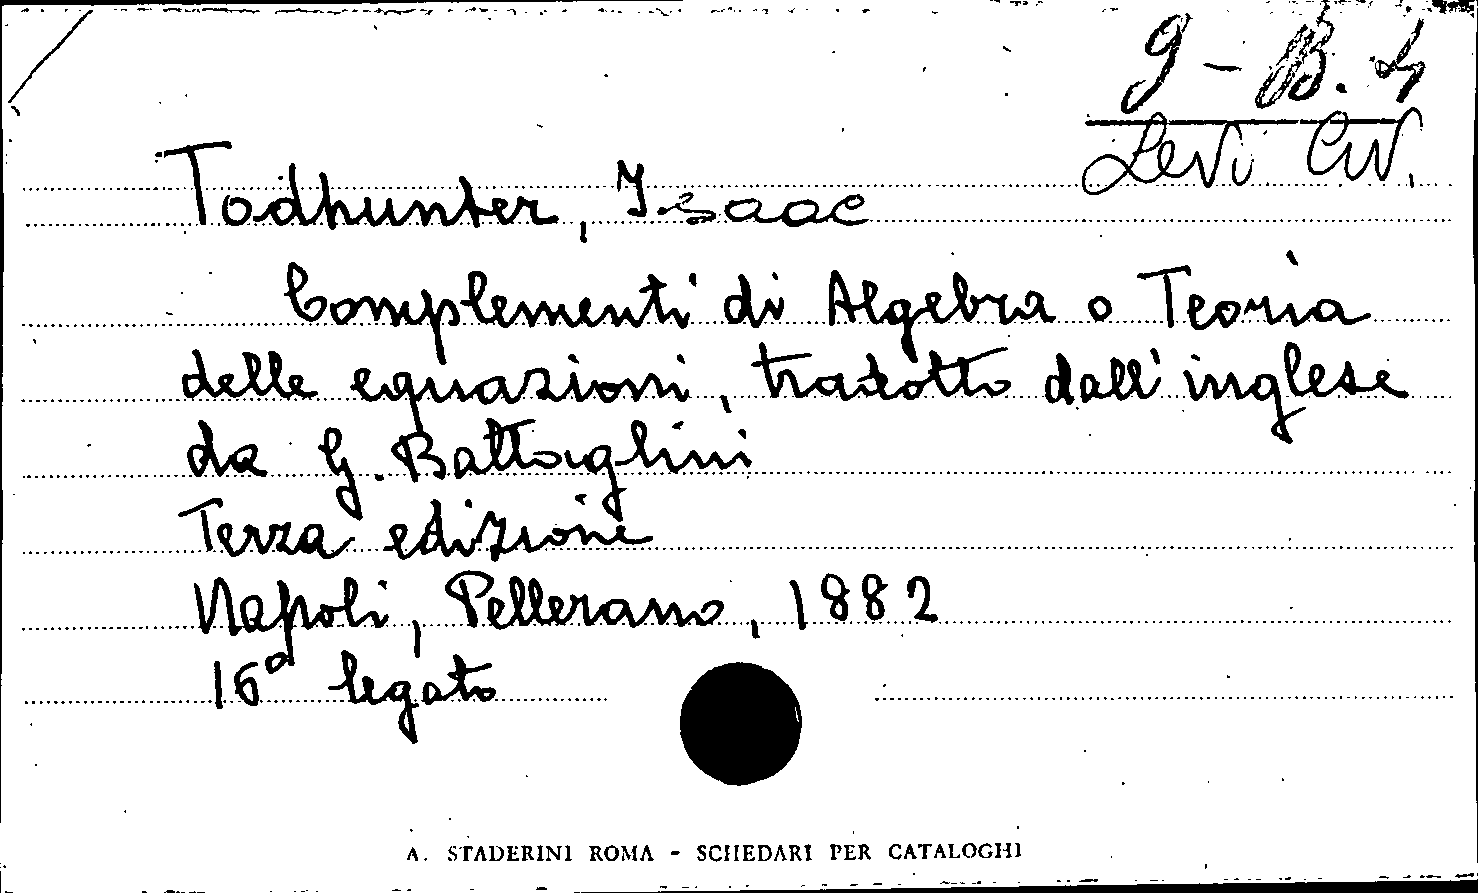 9 - B. 4
Levi Civ.
Todhunter, Isaac
Complementi di Algebra o Teoria
delle equazioni, tradotto dall'inglese
da G. Battaglini
Terza edizione
Napoli, Pellerano, 1882
16° legato
A. STADERINI ROMA - SCHEDARI PER CATALOGHI